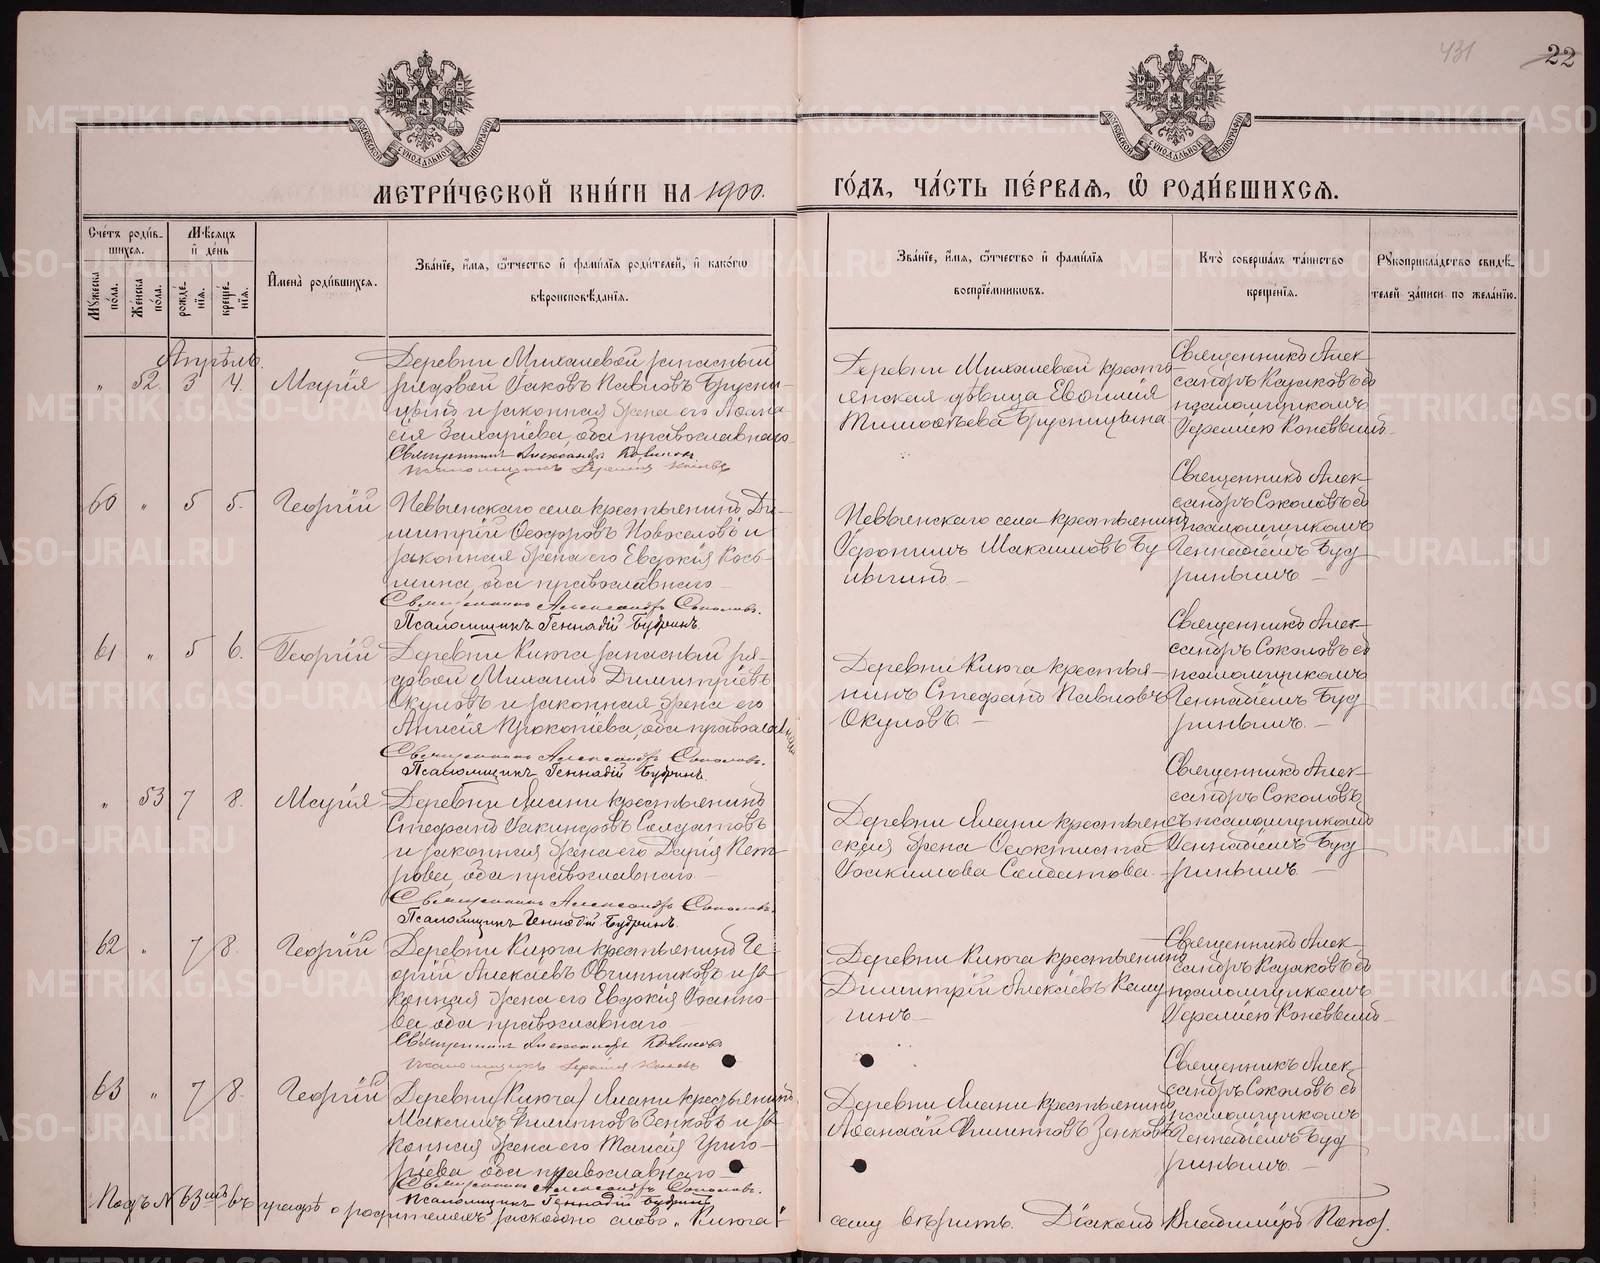 431
22
МОСКОВСКОЙ СѴНОДАЛЬНОЙ ТИПОГРАФІИ
МОСКОВСКОЙ СѴНОДАЛЬНОЙ ТИПОГРАФІИ
МЕТРИ́ЧЕСКОЙ КНИ́ГИ НА 1900.
ГО́ДЪ, ЧА́СТЬ ПЕ́РВАЯ, Ѡ҆ РОДИ́ВШИХСЯ.
Сче́тъ роди́в-
шихся.
Мужеска по́ла.
Же́нска по́ла.
Мѣ́сяцъ
и҆ де́нь
рожде́-
нїя.
креще́-
нїя.
И҆мена̀ роди́вшихся.
Зва́нїе, и҆́мя, ѻ҆́тчество и҆ фами́лїя роди́телей, и҆ како́гѡ
вѣроисповѣ́данїя.
Зва́нїе, и҆́мя, ѻ҆́тчество и҆ фами́лїя
воспрїе́мниковъ.
Кто̀ соверша́лъ та́инство
креще́нїя.
Рꙋкоприкла́дство свидѣ́-
телей за́писи по жела́нїю.
Апрѣль.
„ 52. 3 4. Марія
Деревни Михалевой запасный
рядовой Іаковъ Павловъ Брусни-
цынъ и законная жена его
Захаріева, оба православнаго
Священникъ Александръ
Псаломщикъ Іеремія
Деревни Михалевой кресть-
янская дѣвица Евѳимія
Тимоѳѣева Брусницына
Священникъ Алек-
сандръ съ
псаломщикомъ
Іереміею
60 „ 5 5. Георгій
Невьянскаго села крестьянинъ Ди-
митрій Ѳеодоровъ Новоселовъ и
законная жена его Евдокія Кось-
мина, оба православнаго
Священникъ Александръ Соколовъ.
Псаломщикъ Геннадій Будринъ.
Невьянскаго села крестьянинъ
Максимовъ
Священникъ Алек-
сандръ Соколовъ съ
псаломщикомъ
Геннадіемъ Буд-
ринымъ
61 „ 5 6. Георгій
Деревни Ключа запасный ря-
довой Михаилъ Димитріевъ
Окуловъ и законная жена его
Анисія Прокопіева, оба православнаго
Священникъ Александръ Соколовъ.
Псаломщикъ Геннадій Будринъ.
Деревни Ключа крестья-
нинъ Стефанъ Павловъ
Окуловъ.
Священникъ Алек-
сандръ Соколовъ съ
псаломщикомъ
Геннадіемъ Буд-
ринымъ.
„ 53 7 8. Марія
Деревни Ялани крестьянинъ
Стефанъ Іакинфовъ Солдатовъ
и законная жена его Дарія Пет-
рова, оба православнаго
Священникъ Александръ Соколовъ.
Псаломщикъ Геннадій Будринъ.
Деревни Ялани крестьян-
ская жена Ѳеоктиста
Іоакимова Солдатова.
Священникъ Алек-
сандръ Соколовъ
съ псаломщикомъ
Геннадіемъ Буд-
ринымъ.
62 „ 7 8. Георгій
Деревни Ключа крестьянинъ Ге-
оргій Алексіевъ Овчинниковъ и за-
конная жена его Евдокія Іоанно-
ва, оба православнаго
Священникъ Александръ
Псаломщикъ Іеремія
Деревни Ключа крестьянинъ
Димитрій Алексіевъ Кошу-
гинъ
Священникъ Алек-
сандръ съ
псаломщикомъ
Іереміею
63 „ 7 8. Георгій
Деревни (Ключа) Ялани крестьянинъ
Максимъ Филипповъ Зенковъ и за-
конная жена его Таисія Григо-
ріева, оба православнаго
Священникъ Александръ Соколовъ.
Псаломщикъ Геннадій Будринъ
Деревни Ялани крестьянинъ
Аѳанасій Филипповъ Зенковъ
Священникъ Алек-
сандръ Соколовъ съ
псаломщикомъ
Геннадіемъ Буд-
ринымъ.
Подъ № 63мъ въ графѣ о родителяхъ въ скобкахъ слово „Ключа"
сему вѣрить. Діаконъ Владиміръ Попов.
METRIKI.GASO-URAL.RU